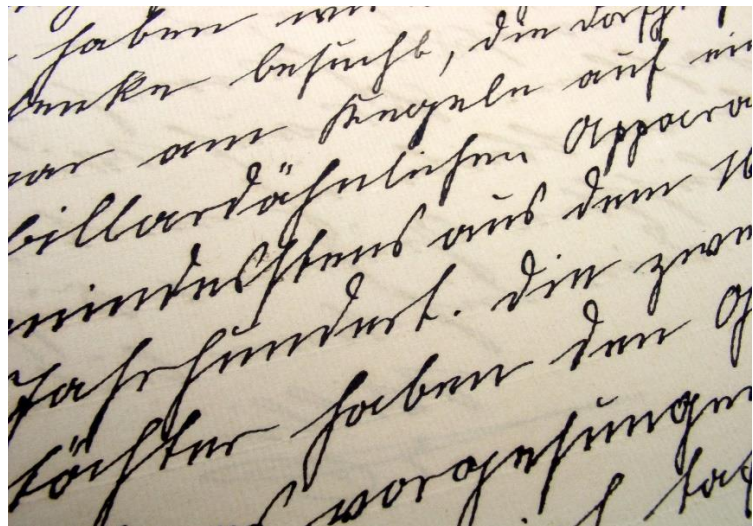 haben wi
enke besucht, die dors
ar am Kegeln auf ein
billardähnlichen Appara
mindesstens aus dem 16
Jahrhundert. Die zwe
töchter haben den G
vorgesungen
h ta